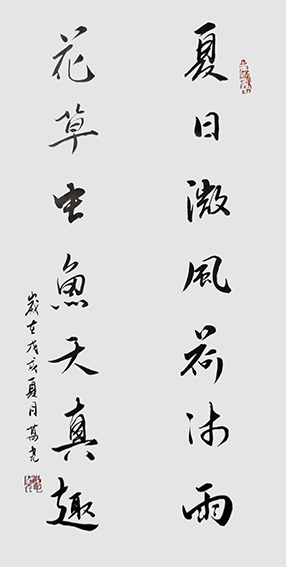 夏日微風荷沐雨
花草虫魚天真趣
歲在戊戌夏月萬堯